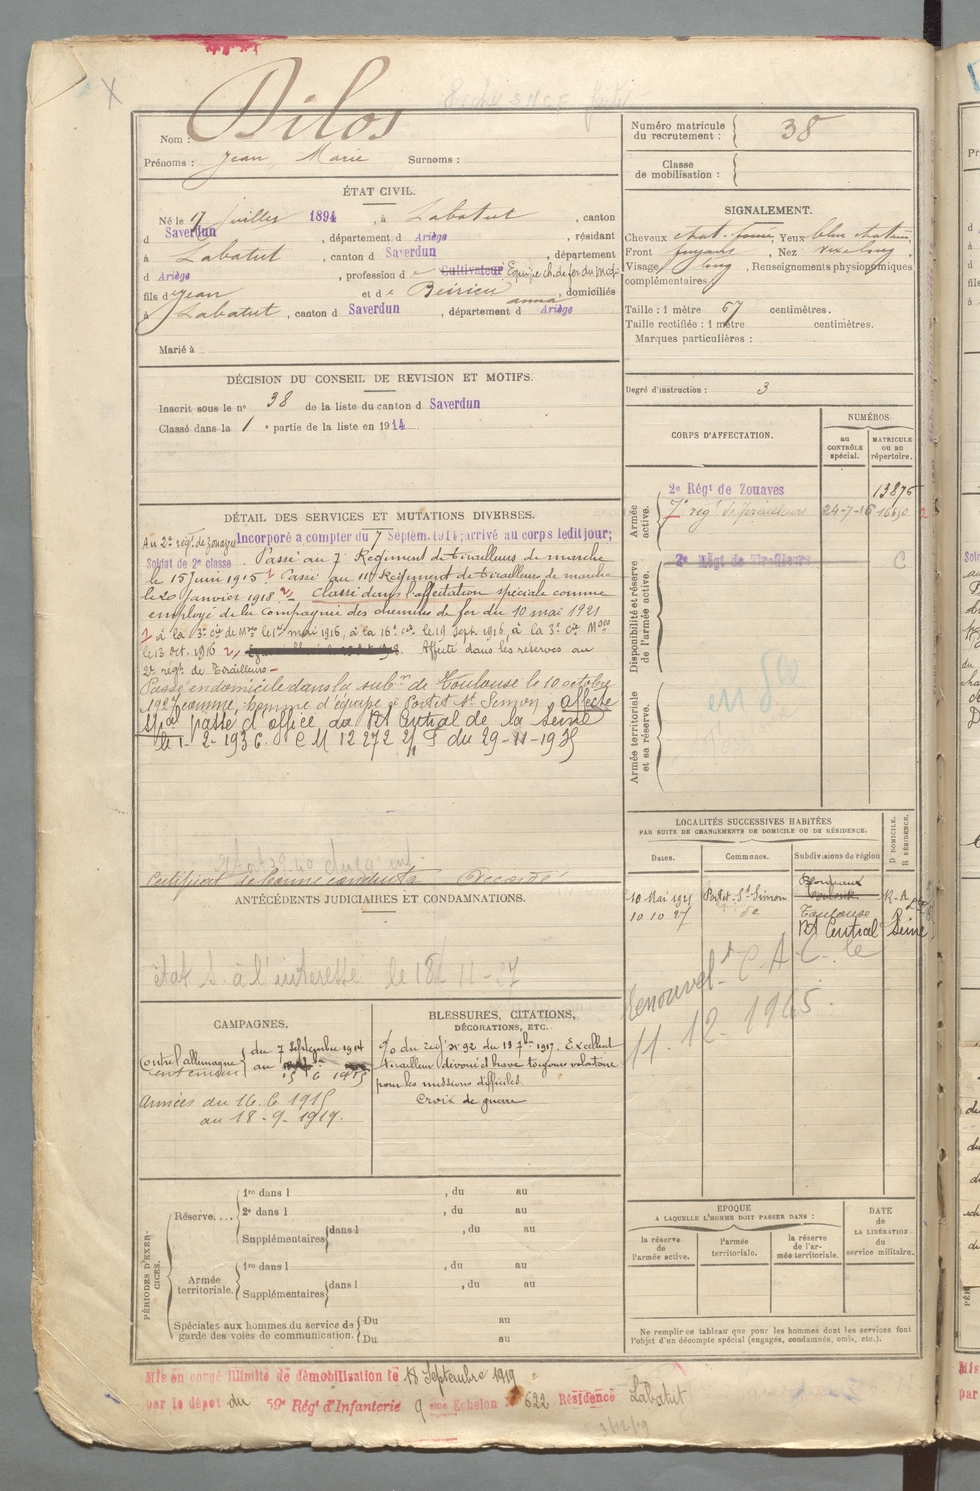 Nom : Dilos
Prénoms : Jean Marie Surnoms :
Numéro matricule du recrutement : 38
Classe de mobilisation :
ÉTAT CIVIL.
Né le 7 Juillet 1894, à Labatut, canton
d Saverdun, département d Ariège, résidant
à Labatut, canton d Saverdun, département
d Ariège, profession de Cultivateur Équipe ch. de fer du Midi
fils d Jean et de anna, domiciliés
à Labatut, canton d Saverdun, département d Ariège
Marié à
SIGNALEMENT.
Cheveux chat. , Yeux bleu
Front fuyant, Nez
Visage long, Renseignements physiopomiques
complémentaires :
Taille : 1 mètre 67 centimètres.
Taille rectifiée : 1 mètre centimètres.
Marques particulières :
Degré d'instruction : 3
DÉCISION DU CONSEIL DE REVISION ET MOTIFS.
Inscrit sous le n° 38 de la liste du canton d Saverdun
Classé dans la 1e partie de la liste en 1914
CORPS D'AFFECTATION.
NUMÉROS
au CONTRÔLE spécial.
MATRICULE ou au répertoire.
Armée active.
2e Régt de Zouaves 13876
7e régt de Tirailleurs 24-7-16
Disponibilité et réserve de l'armée active.
2e Régt de Tirailleurs C
Armée territoriale et sa réserve.
DÉTAIL DES SERVICES ET MUTATIONS DIVERSES.
Au 2e régt. de Zouaves Incorporé à compter du 7 Septem. 1914; arrivé au corps ledit jour;
Soldat de 2e classe. Passé au 7e Régiment de tirailleurs de marche
le 15 Juin 1915 Passé au 11e Régiment de tirailleurs de marche
le 20 Janvier 1918 Classé dans l'affectation spéciale comme
employé de la Compagnie des chemins de fer du 10 mai 1921
à la 3e cie de Mses le 1er mai 1916, à la 16e cie le 19 Sept. 1916, à la 3e cie
le 13 oct. 1916 Affecté dans les réserves au
2e régt de Tirailleurs
Passe en domicile dans la subon de Toulouse le 10 octobre
1927 comme homme d'équipe à Portet St Simon affecté
spal passé d'office au Bt Central de la Seine
le 1-2-1936. C M 12272 du 29-11-1935
Certificat de bonne conduite accordé
LOCALITÉS SUCCESSIVES HABITÉES
PAR SUITE DE CHANGEMENTS DE DOMICILE OU DE RÉSIDENCE.
Dates. Communes. Subdivisions de région D DOMICILE. R RÉSIDENCE.
10 Mai 1921 Portet-St Simon R-A
10 10 27 do Toulouse
Bt Central Seine
Renouvelt C.A.C. le
11.12.1965
ANTÉCÉDENTS JUDICIAIRES ET CONDAMNATIONS.
CAMPAGNES.
Contre l'allemagne du 7 Septembre 1914
au 15 6 1915
Armées du 16.6 1915
au 18-9-1919.
BLESSURES, CITATIONS, DÉCORATIONS, ETC.
C/o du régt N° 92 du 13 7bre 1917. Excellent
tirailleur dévoué et brave toujours volontaire
pour les missions difficiles
Croix de guerre
PÉRIODES D'EXERCICES.
Réserve....
1re dans l , du au
2e dans l , du au
Supplémentaires dans l , du au
Armée territoriale.
1re dans l , du au
Supplémentaires dans l , du au
Spéciales aux hommes du service de garde des voies de communication.
Du au
Du au
EPOQUE
A LAQUELLE L'HOMME DOIT PASSER DANS :
la réserve de l'armée active.
l'armée territoriale.
la réserve de l'armée territoriale.
DATE de LA LIBÉRATION du service militaire.
Ne remplir ce tableau que pour les hommes dont les services font
l'objet d'un décompte spécial (engagés, condamnés, omis, etc.).
Mis en congé illimité de démobilisation le 18 Septembre 1919
par le dépôt du 59e Régt d'Infanterie 9 eme Echelon N° 622 Résidence Labatut